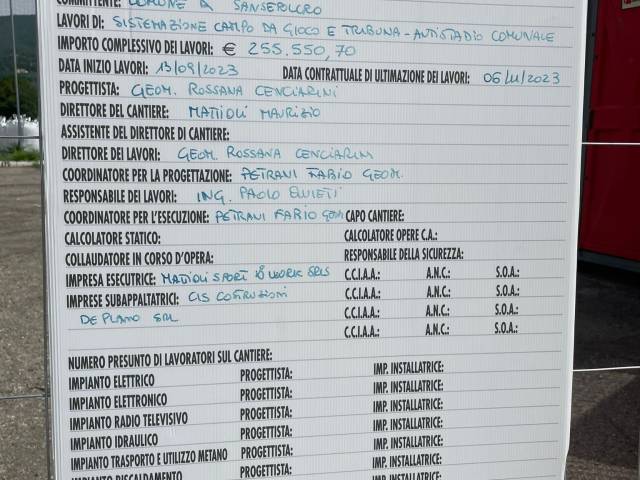 COMMITTENTE: COMUNE DI SANSEPOLCRO
LAVORI DI: SISTEMAZIONE CAMPO DA GIOCO E TRIBUNA - ANTISTADIO COMUNALE
IMPORTO COMPLESSIVO DEI LAVORI: € 255.550,70
DATA INIZIO LAVORI: 13/09/2023 DATA CONTRATTUALE DI ULTIMAZIONE DEI LAVORI: 06/11/2023
PROGETTISTA: GEOM. ROSSANA CENCIARINI
DIRETTORE DEL CANTIERE: MATTIOLI MAURIZIO
ASSISTENTE DEL DIRETTORE DI CANTIERE:
DIRETTORE DEI LAVORI: GEOM. ROSSANA CENCIARINI
COORDINATORE PER LA PROGETTAZIONE: PETRANI FABIO GEOM.
RESPONSABILE DEI LAVORI: ING. PAOLO
COORDINATORE PER L'ESECUZIONE: PETRANI FABIO GEOM CAPO CANTIERE:
CALCOLATORE STATICO: CALCOLATORE OPERE C.A.:
COLLAUDATORE IN CORSO D'OPERA: RESPONSABILE DELLA SICUREZZA:
IMPRESA ESECUTRICE: MATTIOLI SPORT & WORK SRLS C.C.I.A.A.: A.N.C.: S.O.A.:
IMPRESE SUBAPPALTATRICI: CIS COSTRUZIONI C.C.I.A.A.: A.N.C.: S.O.A.:
DE PLANO SRL C.C.I.A.A.: A.N.C.: S.O.A.:
C.C.I.A.A.: A.N.C.: S.O.A.:
NUMERO PRESUNTO DI LAVORATORI SUL CANTIERE:
IMPIANTO ELETTRICO PROGETTISTA: IMP. INSTALLATRICE:
IMPIANTO ELETTRONICO PROGETTISTA: IMP. INSTALLATRICE:
IMPIANTO RADIO TELEVISIVO PROGETTISTA: IMP. INSTALLATRICE:
IMPIANTO IDRAULICO PROGETTISTA: IMP. INSTALLATRICE:
IMPIANTO TRASPORTO E UTILIZZO METANO PROGETTISTA: IMP. INSTALLATRICE:
IMPIANTO RISCALDAMENTO PROGETTISTA: IMP. INSTALLATRICE: